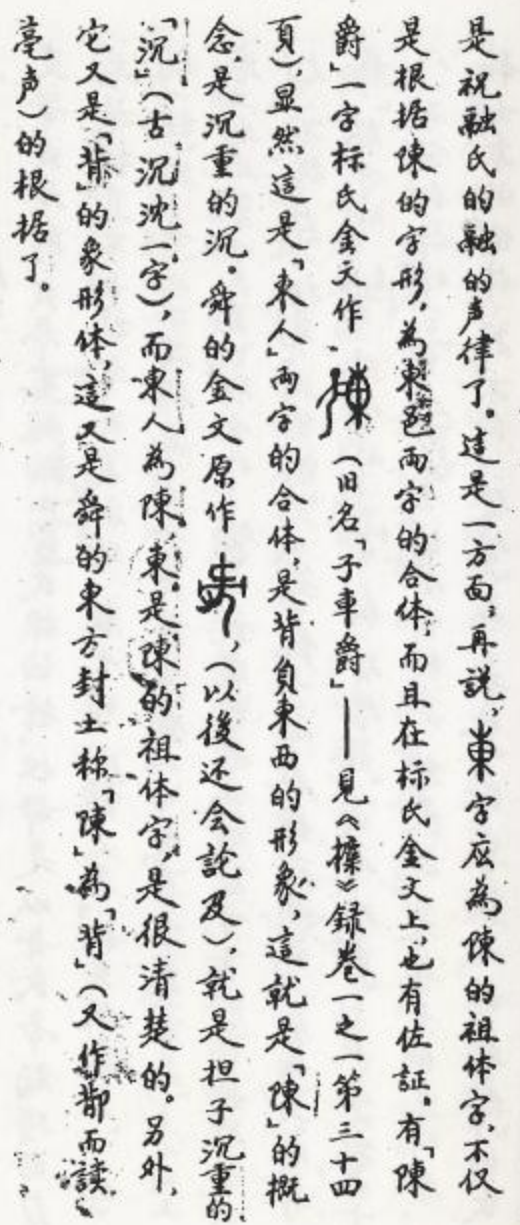 是祝融氏的融的声律了。這是一方面，再説，東字应為陳的祖体字，不仅
是根据陳的字形，為東邑两字的合体，而且在标氏金文上，也有佐証。有「陳
爵」一字标氏金文作（旧名「子車爵」——見《攈》録卷一之一第三十四
頁），显然這是「東人」両字的合体，是背負東西的形象，這就是「陳」的概
念，是沉重的沉。舜的金文原作，（以後还会論及），就是担子沉重的
「沉」（古沉沈一字），而東人為陳，東是陳的祖体字，是很清楚的。另外，
它又是「背」的象形体，這又是舜的東方封土称「陳」為「背」（又作鄁而读
亳声）的根据了。